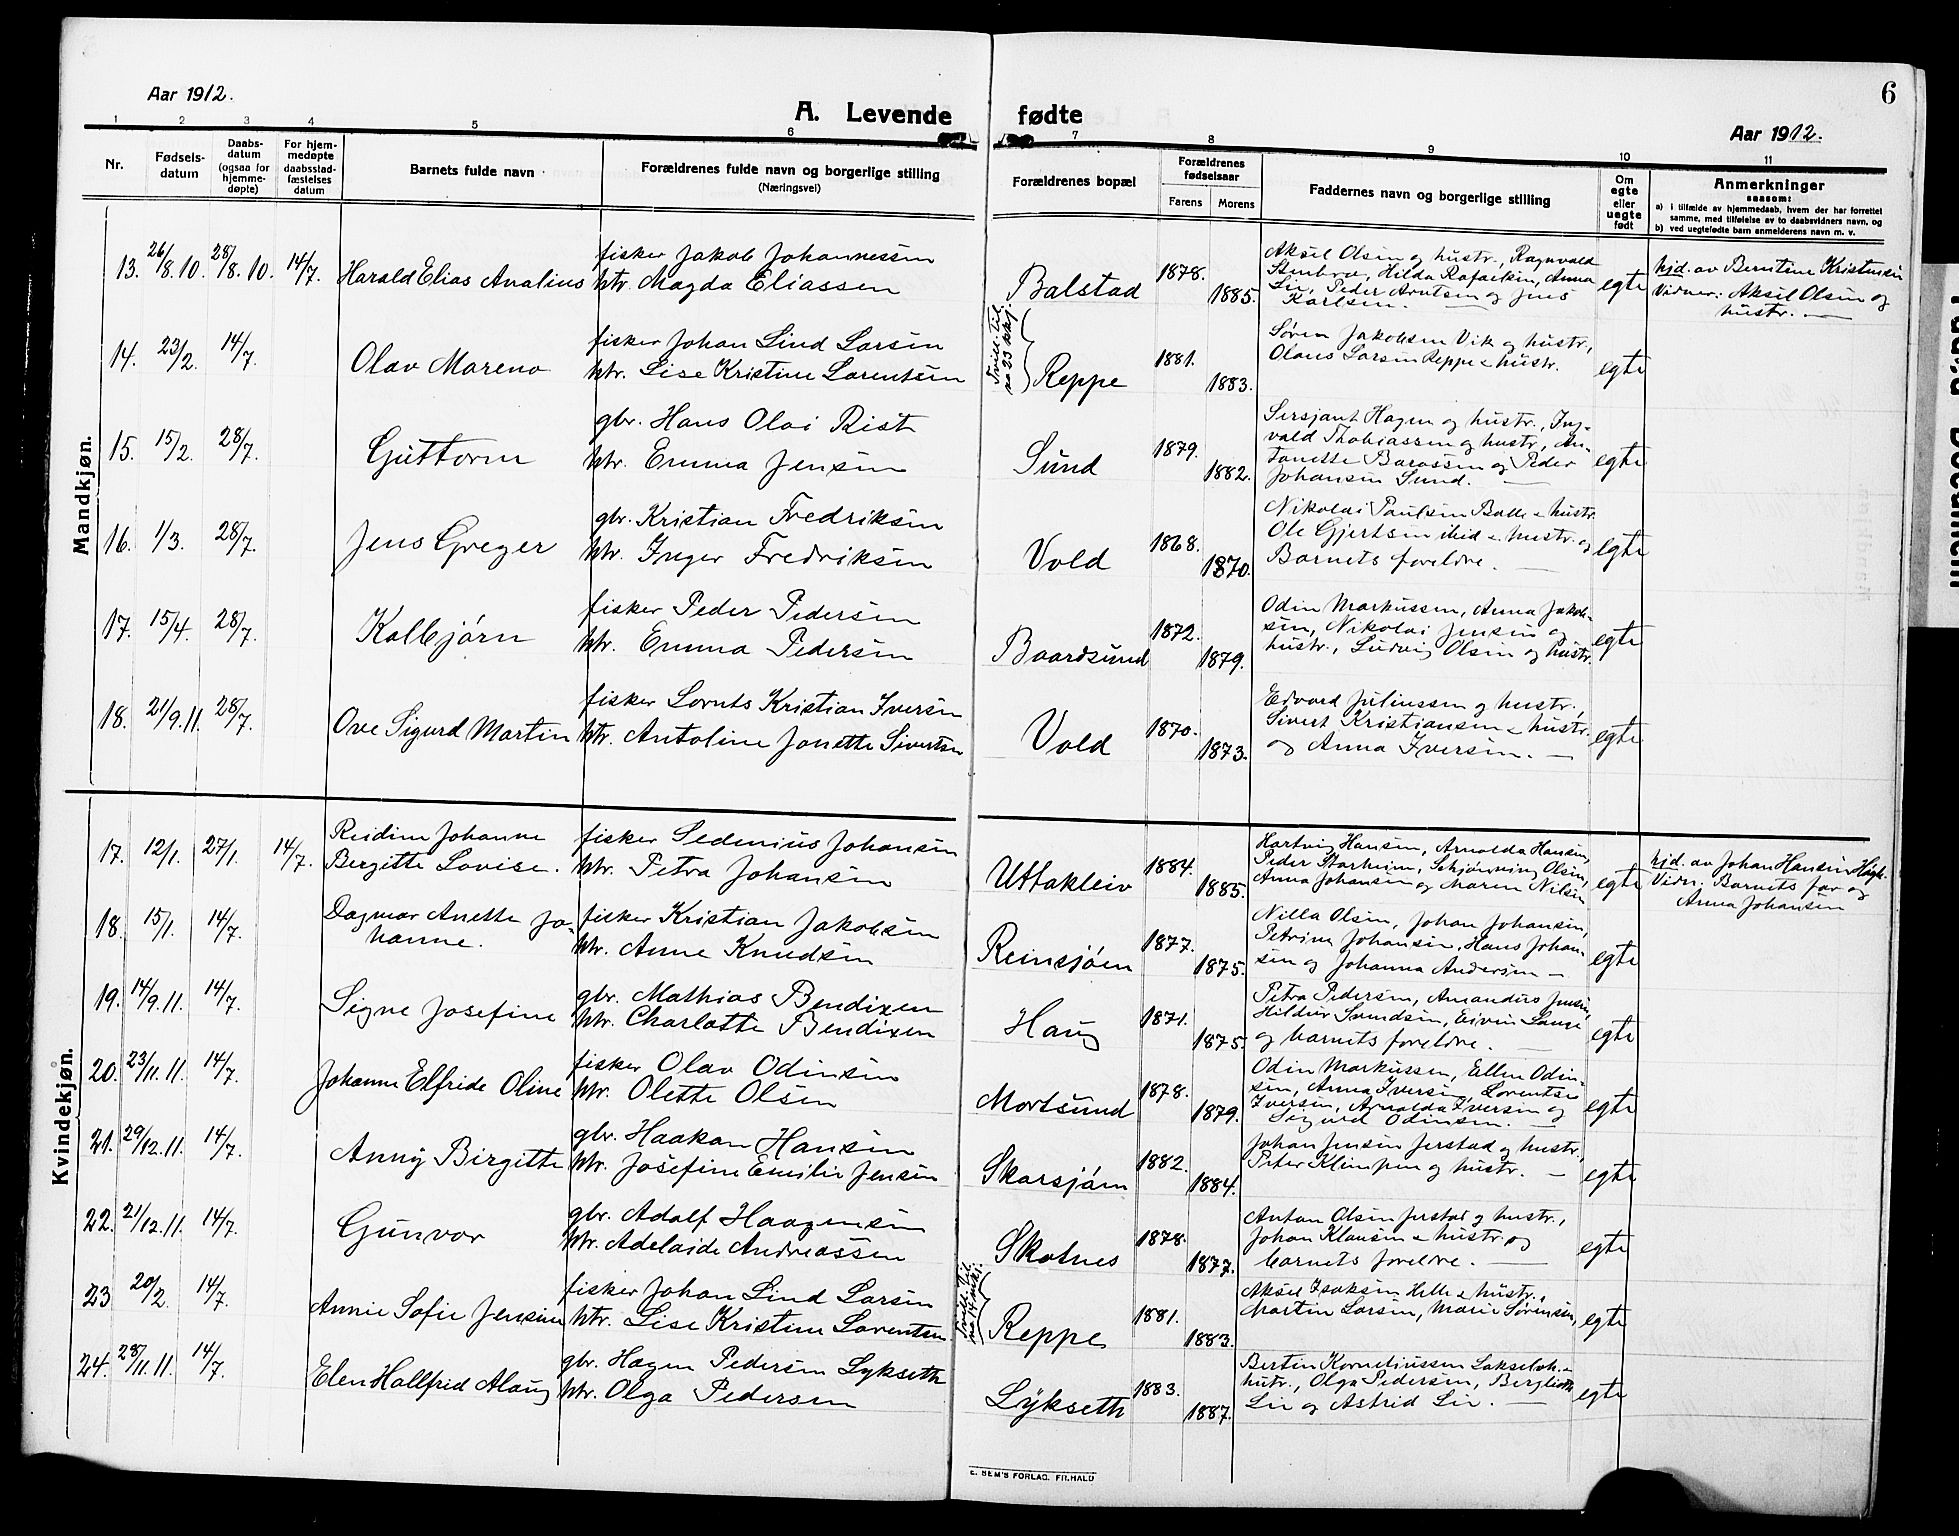 6
Aar 1912.
A. Levende fødte
Aar 1912.
1 2 3 4 5 6 7 8 9 10 11
Nr.
Fødsels-
datum
Daabs-
datum
(ogsaa for
hjemme-
døpte)
For hjem-
medøpte
daabsstad-
fæstelses
datum
Barnets fulde navn
Forældrenes fulde navn og borgerlige stilling
(Næringsvei)
Forældrenes bopæl
Forældrenes
fødselsaar
Farens Morens
Faddernes navn og borgerlige stilling
Om
egte
eller
uegte
født
Anmerkninger
saasom:
a) i tilfælde av hjemmedaab, hvem der har forrettet
samme, med tilføielse av to daabsvidners navn, og
b) ved uegtefødte barn anmelderens navn m. v.
Mandkjøn.
13. 26/8.10. 28/8.10. 14/7. Harald Elias Analius
fisker Jakob Johannessen
htr. Magda Eliassen
Balstad 1878. 1885.
Aksel Olsen og hustr., Ragnvald
Stenbro, Hilda Rafaelsen, Anna
Lie, Peder Arntsen og Jens
Karlsen.
egte
hjd. av Berntine Kristensen
Vidner: Aksel Olsen og
hustr.
14. 23/2. 14/7. Olav Mareno
fisker Johan Lind Larsen
htr. Lise Kristine Lorentsen
Tvill. til
no 23 kvkj.
Reppe 1881. 1883.
Søren Jakobsen Vik og hustr.,
Olaus Larsen Reppe & hustr.
egte
15. 15/2. 28/7. Guttorm
gbr. Hans Olai Rist
htr. Emma Jensen
Sund 1879. 1882.
Sersjant Hagen og hustr., Ing-
vald Thobiassen og hustr., An-
tonette Barossen og Peder
Johansen Sund.
egte
16. 1/3. 28/7. Jens Greger
gbr. Kristian Fredriksen
htr. Inger Fredriksen
Vold 1868. 1870.
Nikolai Paulsen Balle & hustr.
Ole Gjertsen ibid & hustr. og
Barnets foreldre.
egte
17. 15/4. 28/7. Kolbjørn
fisker Peder Pedersen
htr. Emma Pedersen
Baardsund 1872. 1879.
Odin Markussen, Anna Jakob-
sen, Nikolai Jensen og
hustr., Ludvig Olsen og hustr.
egte
18. 21/9.11. 28/7. Ove Sigurd Martin
fisker Lornts Kristian Iversen
htr. Antoline Jonette Sivertsen
Vold 1870. 1873.
Edvard Juliussen og hustr.,
Sivert Kristiansen & hustr.
og Anna Iversen.
egte
Kvindekjøn.
17. 12/1. 27/1. 14/7. Reidun Johanne
Bergitte Lovise.
fisker Sedenius Johansen
htr. Petra Johansen
Uttakleiv 1884. 1885.
Hartvig Hansen, Arnolda Hansen,
Peder Storheim, Schjønning Olsen,
Anna Johansen og Maren Nilsen
egte
hjd. av Johan Hansen Høgh.
Vidn. Barnets far og
Anna Johansen
18. 15/1. 14/7. Dagmar Anette Jo-
hanne.
fisker Kristian Jakobsen
htr. Anne Knudsen
Reinsjøen 1877. 1875.
Nilla Olsen, Johan Johansen,
Petrine Johansen, Hans Johan-
sen og Johanna Andersen
egte
19. 14/9.11. 14/7. Signe Josefine
gbr. Mathias Bendixen
htr. Charlotte Bendixen
Haug 1871. 1875.
Petra Pedersen, Amandus Jensen,
Hildur Svendsen, Eivin Lange
og barnets foreldre.
egte
20. 23/11.11. 14/7. Johanne Elfride Oline
fisker Olav Odinsen
htr. Olette Olsen
Mortsund 1878. 1879.
Odin Markussen, Ellen Odin-
sen, Anna Iversen, Lorentse
Iversen, Arnolda Iversen og
Sigurd Odinsen.
egte
21. 29/12.11. 14/7. Anny Birgitte
gbr. Haakon Hansen
htr. Josefine Emilie Jensen
Skarsjøen 1882. 1884.
Johan Jensen Jerstad og hustr.,
Peter Klempen og hustr.
egte
22. 21/12.11. 14/7. Gunvor
gbr. Adolf Haagensen
htr. Adelaide Andreassen
Skotnes 1878. 1877.
Anton Olsen Jerstad og hustr.,
Johan Klausen & hustr. og
barnets foreldre.
egte
23 20/2. 14/7. Annie Sofie Jensine
fisker Johan Lind Larsen
htr. Lise Kristine Lorentsen
Tvill. til
no 14 mskj.
Reppe 1881. 1883.
Aksel Isaksen Helle & hustr.,
Martin Larsen, Marie Sørensen,
egte
24. 28/11.11. 14/7. Elen Hallfrid Alaug
gbr. Hagen Pedersen Lykseth
htr. Olga Pedersen
Lykseth 1883. 1887.
Bertin Korneliussen Lakselvh. &
hustr., Olga Pedersen, Bergliot
Lie og Astrid Lie.
egte
E. SEM'S FORLAG. FR.HALD